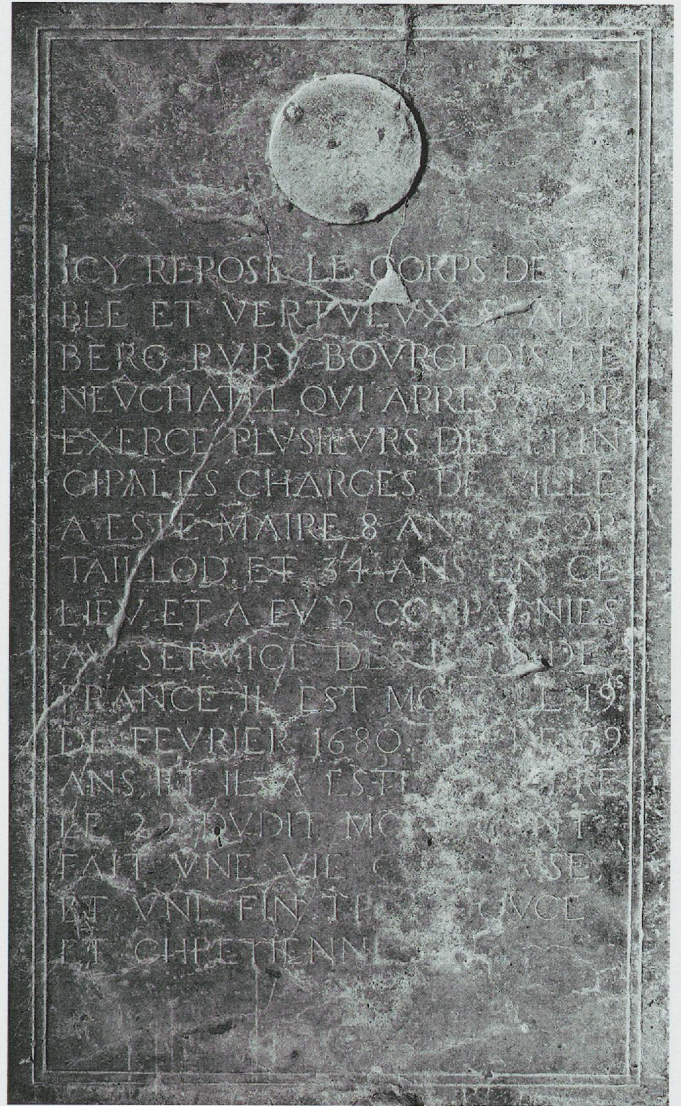 ICY REPOSE LE CORPS DE
BLE ET VERTVEVX Sr
BERG PVRY BOVRGEOIS DE
NEVCHATEL, QVI APRES
EXERCE PLVSIEVRS DES PRIN
CIPALES CHARGES DE VILLE
A ESTE MAIRE 8 ANS
TAILLOD, ET 34 ANS EN CE
LIEV, ET A EV 2 COMPAGNIES
AV SERVICE DES DE
FRANCE IL EST MORT LE 19.
DE FEVRIER 1680.
ANS, ET IL A ESTE
LE 22 DVDIT MOIS
FAIT VNE VIE
ET VNE FIN DOVCE
ET CHRETIENNE